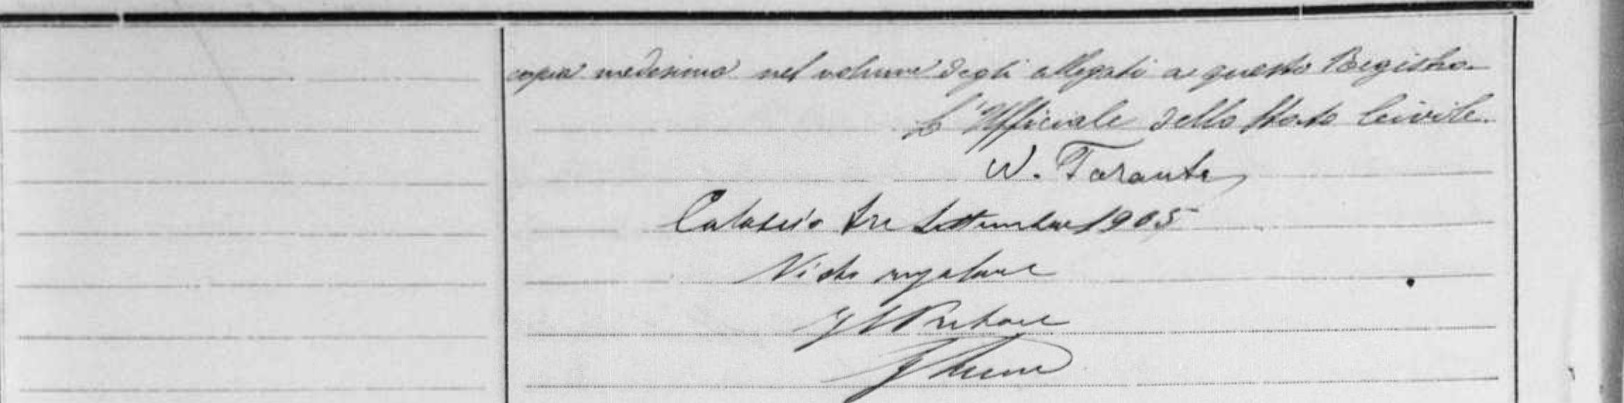 copia medesima nel volume degli allegati a questo Registro.
L'Ufficiale dello Stato Civile.
W. Taranta
Calascio tre Settembre 1905
Visto regolare
Il Pretore